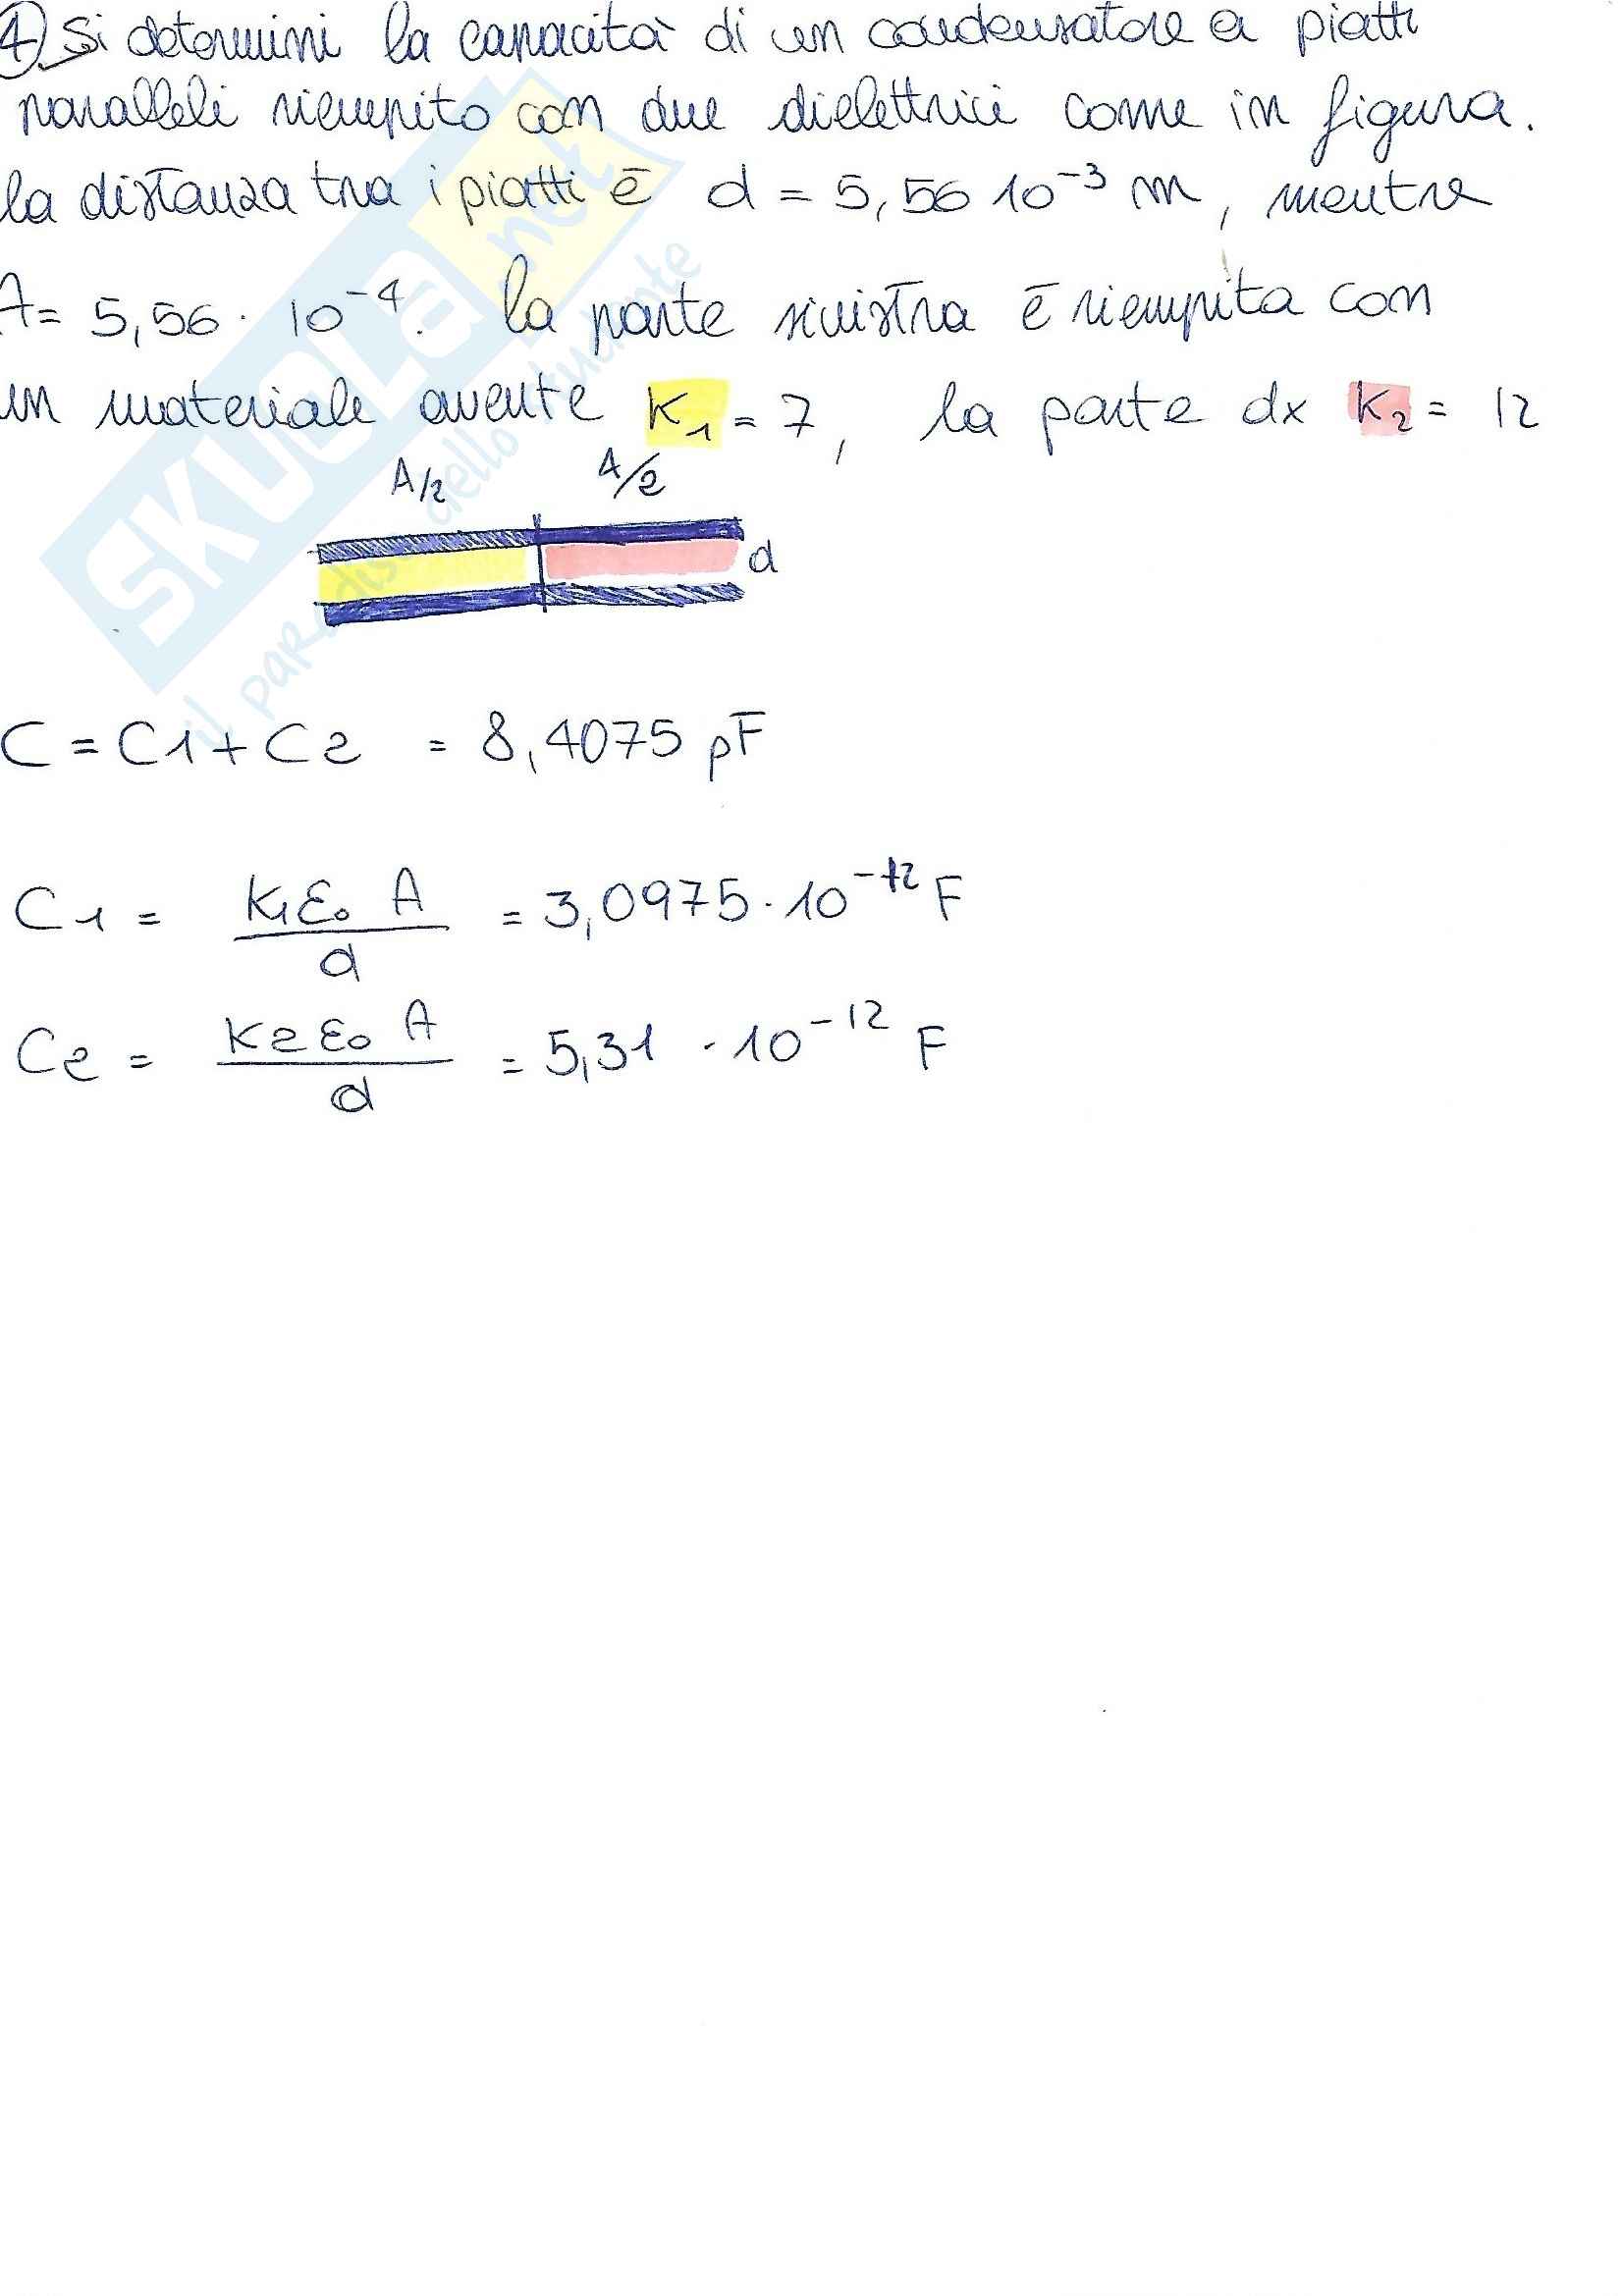 4) Si determini la capacità di un condensatore a piatti
paralleli riempito con due dielettrici come in figura.
la distanza tra i piatti è d = 5,56 10⁻³ m, mentre
A = 5,56 · 10⁻⁴. la parte sinistra è riempita con
un materiale avente K₁ = 7, la parte dx K₂ = 12
A/2 A/2
d
C = C1 + C2 = 8,4075 pF
C1 = K1 ε₀ A / d = 3,0975 · 10⁻¹² F
C2 = K2 ε₀ A / d = 5,31 · 10⁻¹² F
SKUOLA.net
il paradiso dello studente